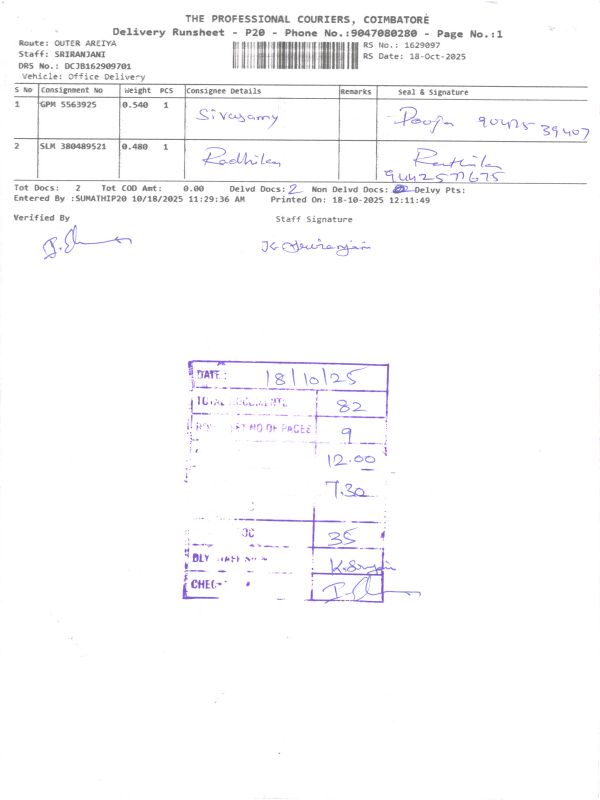 THE PROFESSIONAL COURIERS, COIMBATORE
Delivery Runsheet - P20 - Phone No.:9047080280 - Page No.:1
Route: OUTER AREIYA
RS No.: 1629097
Staff: SRIRANJANI
RS Date: 18-Oct-2025
DRS No.: DCJB162909701
Vehicle: Office Delivery
S No Consignment No Weight PCS Consignee Details Remarks Seal & Signature
1 GPM 5563925 0.540 1 Sivasamy Pooja 90425 39407
2 SLM 380489521 0.480 1 Radhika
Tot Docs: 2 Tot COD Amt: 0.00 Delvd Docs: 2 Non Delvd Docs: Delvy Pts:
Entered By :SUMATHIP20 10/18/2025 11:29:36 AM Printed On: 18-10-2025 12:11:49
Verified By Staff Signature
DATE: 18/10/25
TOTAL DOCUMENTS 82
NO OF PAGES 9
12.00
7.30
35
DLY
CHEC